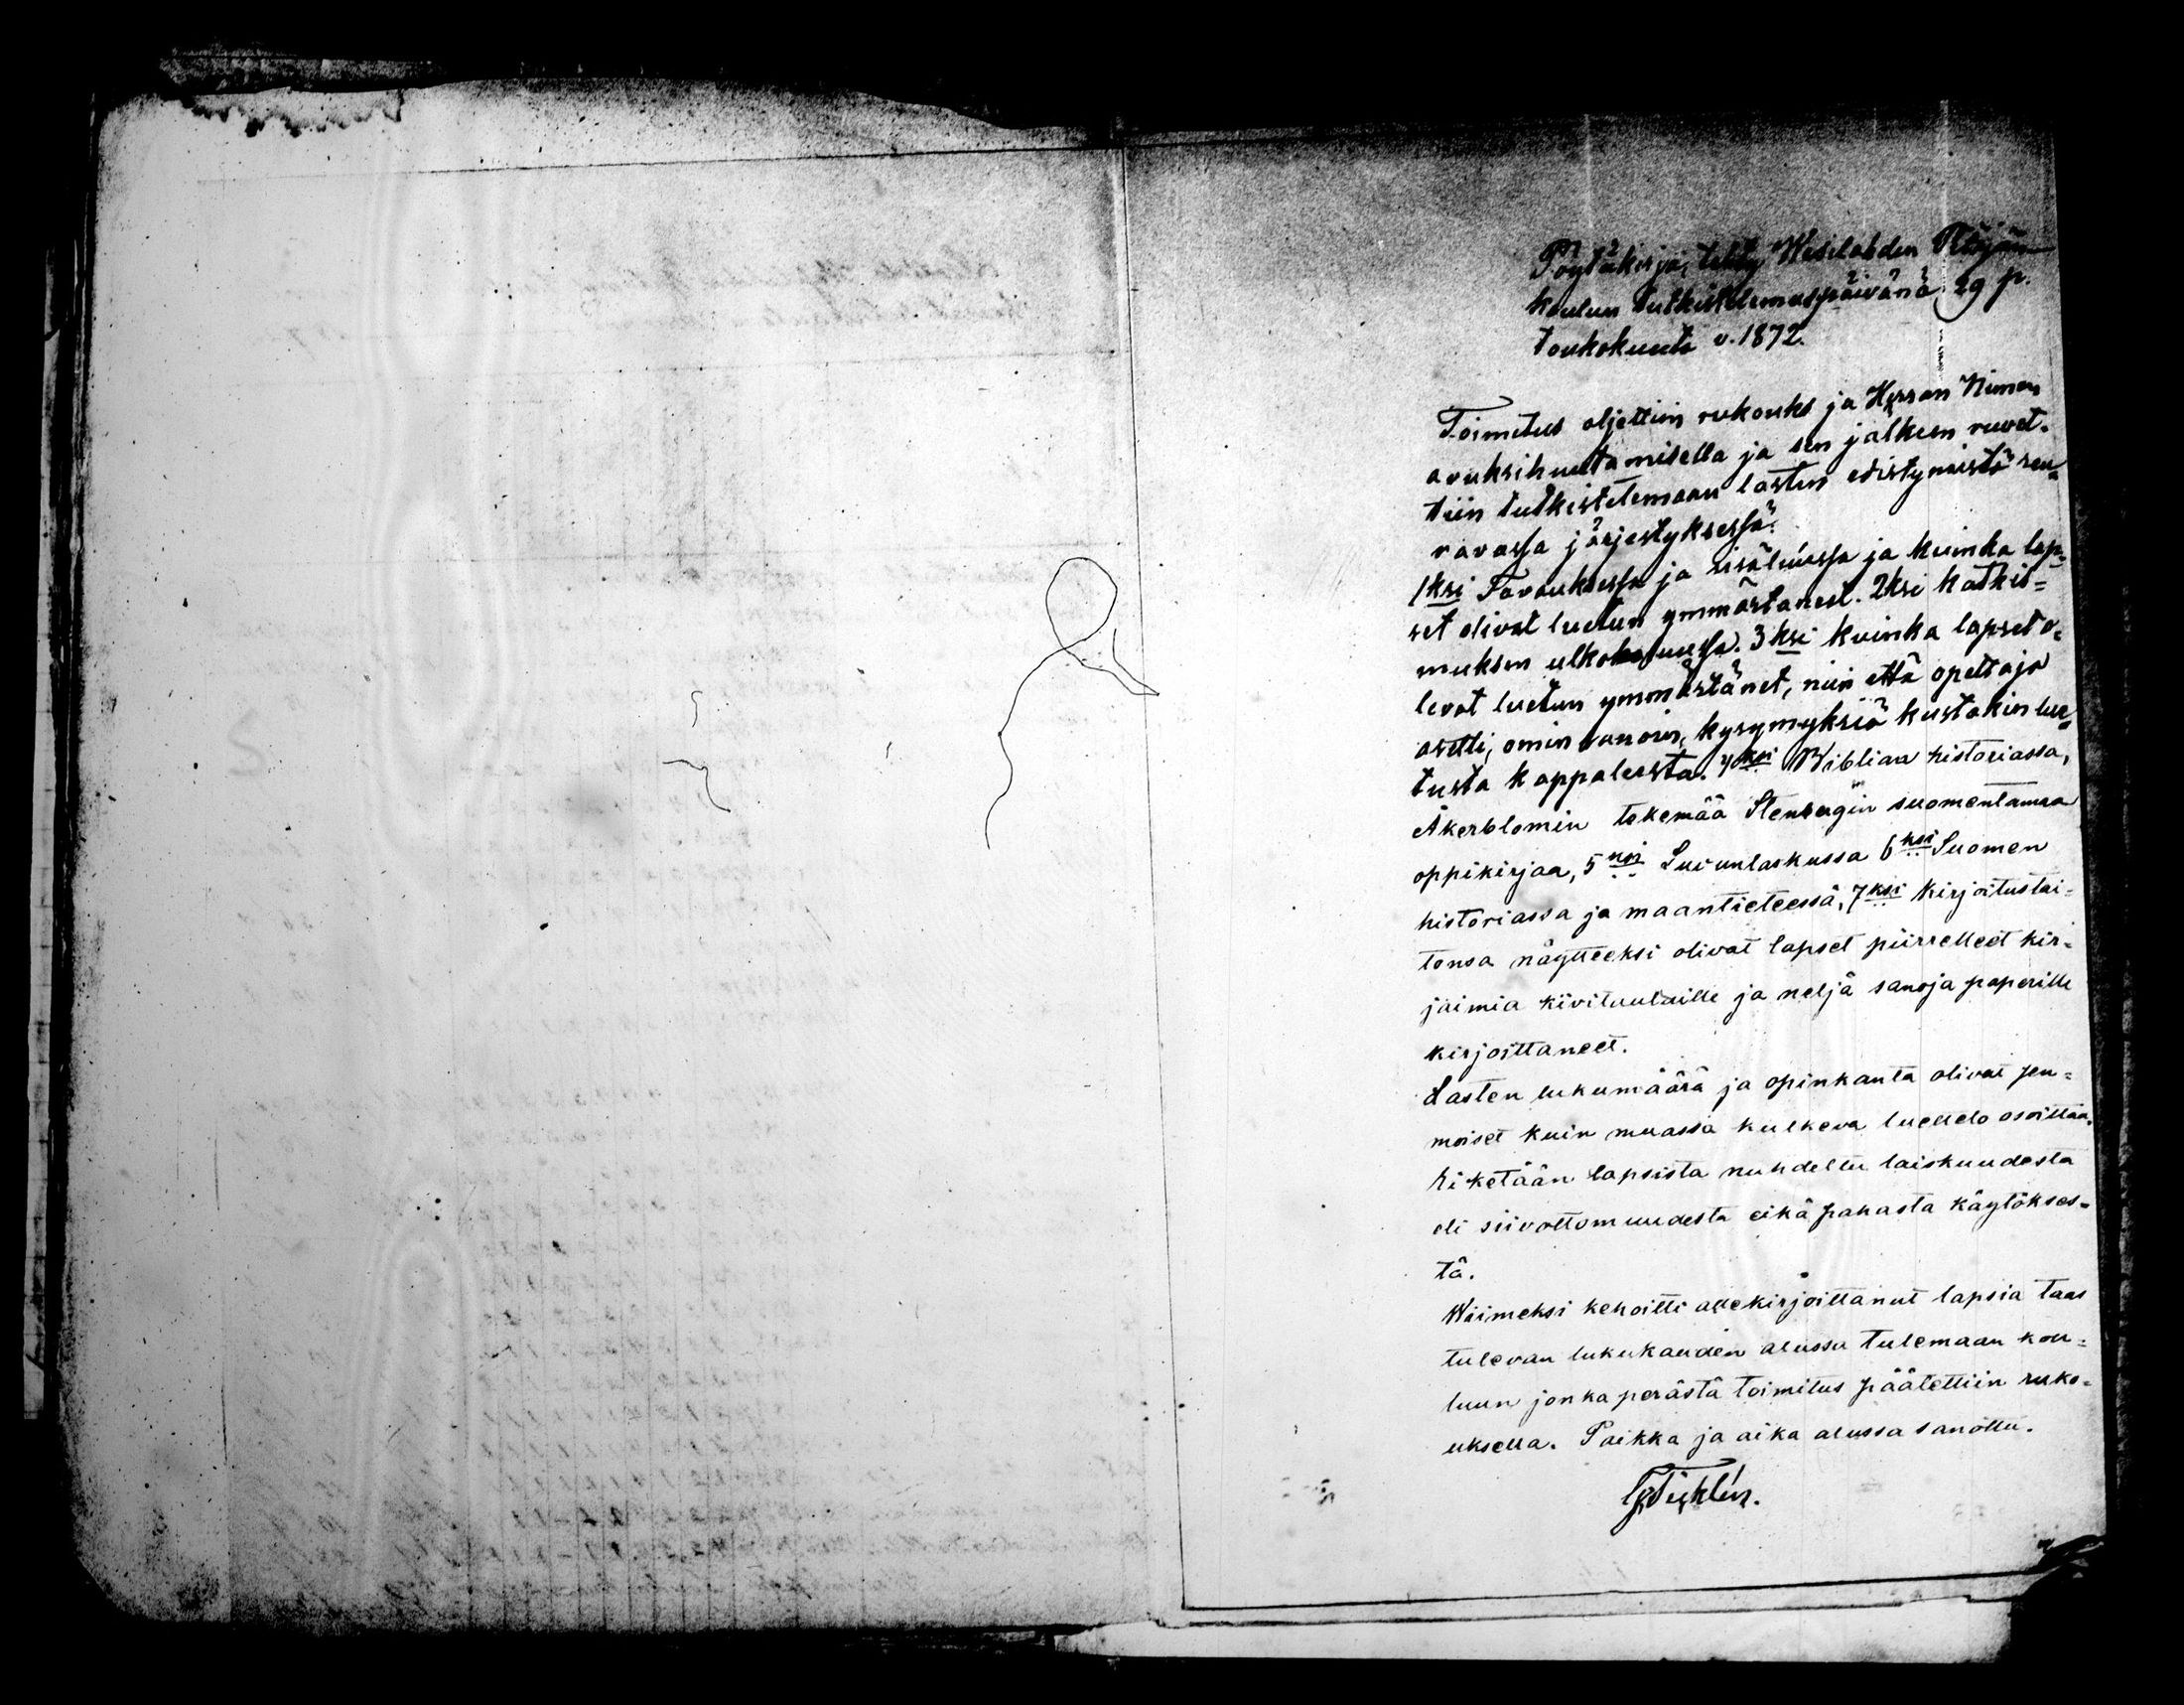 Pöytäkirja, tehty Wesilahden
koulun tutkistelemuspäivänä 29 p.
toukokuuta v. 1872.
Toimitus aljettiin rukouks ja Herran Nimen
avuksihuutamisella ja sen jälkeen ruvet-
tiin tutkistelemaan lasten edistymistä seu-
ravassa järjestyksessä:
1ksi Tavauksessa ja sisäluússa ja kuinka lap-
set olivat luetun ymmärtäneet. 2ksi Katkis-
muksen ulkoluussa. 3ksi kuinka lapset o-
levat luetun ymmärtänet, niin että opettaja
asetti, omin sanoin, kysymyksiä kustakin lue-
tusta kappaleesta. 4ksi Biblian historiassa,
Åkerblomin tekemää Stenbergin suomentamaa
oppikirjaa, 5ksi Luvunlaskussa 6ksi Suomen
historiassa ja maantieteessä, 7ksi Kirjoitustai-
tonsa näytteeksi olivat lapset piirrelleet kir-
jaimia kivitauluille ja neljä sanoja paperille
kirjoittaneet.
Lasten lukumäärä ja opinkanta olivat sen-
moiset kuin muassa kulkeva luettelo osoittaa.
Ei ketään lapsista nuhdeltu laiskuudesta
eli siivottomuudesta eikä pahasta käytökses-
tä.
Wiimeksi kehoitti allekirjoittanut lapsia taas
tulevan lukukauden alussa tulemaan kou-
luun jonka perästä toimitus päätettiin ruko-
uksella. Paikka ja aika alussa sanottu.